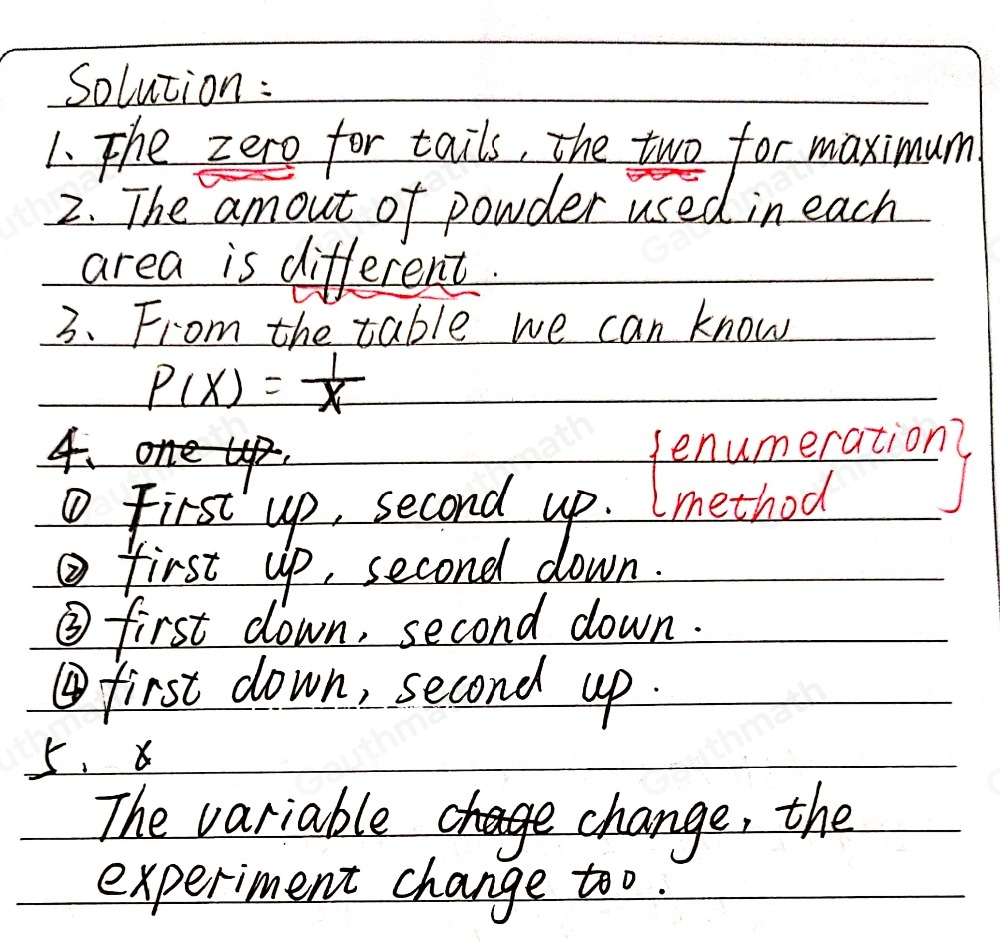 Solution:
1. The zero for tails, the two for maximum.
2. The amout of powder used in each
area is different.
3. From the table we can know
P(X) = 1/X
4. one up.
{enumeration
method}
① First up, second up.
② first up, second down.
③ first down, second down.
④ first down, second up.
5.
The variable chage change, the
experiment change too.
Gauthmath